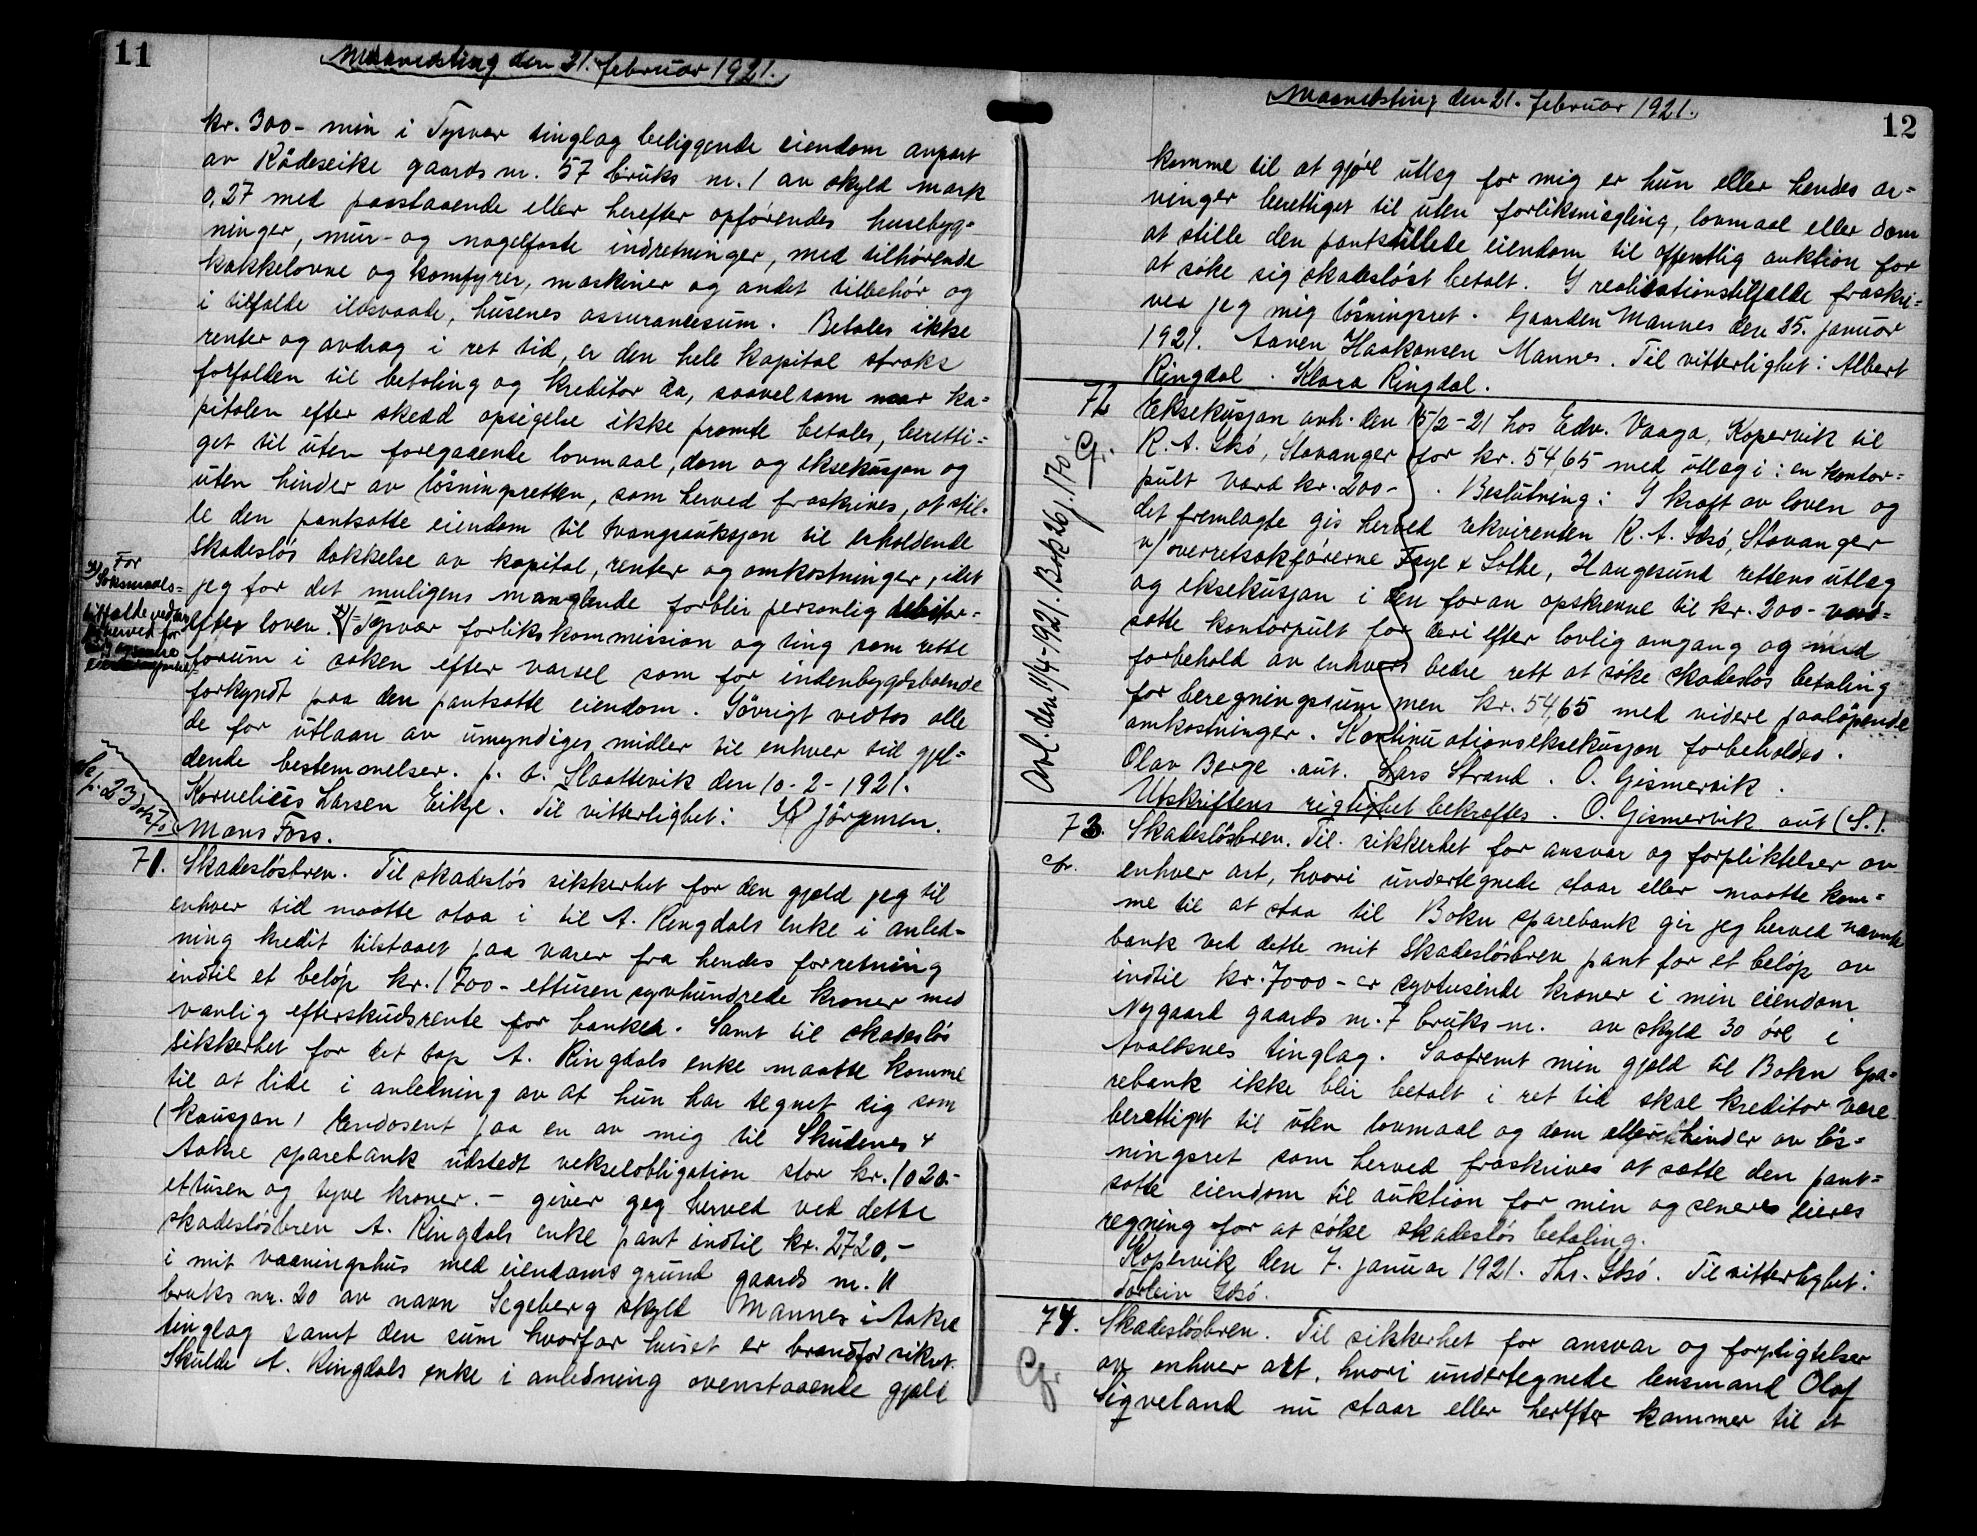 11
Maanedsting den 21. februar 1921.
kr. 300- min i Tysvær tinglag beliggende eiendom anpart
av Rödeseike gaards nr. 57 bruks nr. 1 av skyld mark
0,27 med paastaaende eller herefter opförendes husebyg=
ninger, mur- og nagelfaste indretninger, med tilhörende
kakkelovne og komfyrer, maskiner og andet tilbehör og
i tilfælde ildsvaade, husenes assurancesum. Betales ikke
renter og avdrag i ret tid, er den hele kapital straks
forfalden til betaling og kreditor da, saavelsom naar ka=
pitalen efter skedd opsigelse ikke promte betales, beretti=
get til uten foregaaende lovmaal, dom og eksekusjon og
uten hinder av lösningsretten, som herved fraskrives, at stil=
le den pantsatte eiendom til tvangsauksjon til erholdende
skadeslös dækkelse av kapital, renter og omkostninger, idet
jeg for det muligens manglende forblir personlig debitor
efter loven. x/ Tysvær forlikskommission og ting som rette
forum i saken efter varsel som for indenbygdsboende
forkyndt paa den pantsatte eiendom. Iövrigt vedtas alle
de for utlaan av umyndiges midler til enhver tid gjel=
dende bestemmelser. p. t. Slaattevik den 10-2-1921.
Kornelius Larsen Eikje. Til vitterlighet: Jörgensen.
Mons Foss.
x/ For
Söksmaals-
tilfælde vedtar
jeg herved for
71. Skadeslösbrev. Til skadeslös sikkerhet for den gjæld jeg til
enhver tid maatte staa i til A. Ringdals enke i anled-
ning kredit tilstaaet paa varer fra hendes forretning
indtil et belöp kr. 1700- ettusen syvhundrede kroner med
vanlig efterskudsrente for banken. Samt til skadeslös
sikkerhet for det tap A. Ringdals enke maatte komme
til at lide i anledning av at hun har tegnet sig som
(kausjon) endosent paa en av mig til Skudenes &
Aakre sparebank utstedt vekselobligation stor kr. 1020.-
ettusen og tyve kroner. - giver jeg herved ved dette
skadeslösbrev A. Ringdals enke pant indtil kr. 2720,-
i mit vaaningshus med eiendoms grund gaards nr. 11
bruks nr. 20 av navn Segeberg skyld Mannes i Aakre
tinglag samt den sum hvorfor huset er brandforsikret.
Skulde A. Ringdals enke i anledning ovenstaaende gjæld
12
Maanedsting den 21. februar 1921.
komme til at gjöre utlæg for mig er hun eller hendes ar=
vinger berettiget til uten forliksmægling, lovmaal eller dom
at stille den pantstillede eiendom til offentlig auktion for
at söke sig skadeslöst betalt. I realisationstilfælde fraskri=
ver jeg mig lösningsret. Gaarden Mannes den 25. januar
1921. Aaven Haakonsen Mannes. Til vitterlighet: Albert
Ringdal. Klara Ringdal.
72 Eksekusjon avh. den 15/2-21 hos Edv. Vaaga, Kopervik til
R. A. Idsö, Stavanger for kr. 54.65 med utlæg i: en kontor=
pult værd kr. 200-. Beslutning: I kraft av loven og
det fremlagte gis herved rekvirenten R. A. Idsö, Stavanger
v/ overretssakförerne Faye & Lothe, Haugesund rettens utlæg
og eksekusjon i den foran opskrevne til kr. 200- værd=
satte kontorpult for deri efter lovlig omgang og med
forbehold av enhvers bedre rett at söke skadeslös betaling
for beregningssummen kr. 54,65 med videre paalöpende
omkostninger. Kontinuationseksekusjon forbeholdes.
Olav Berge. aut. Lars Strand. O. Gismervik.
Utskriftens rigtighet bekræftes. O. Gismervik aut (S.).
Avl. den 11/4-1921. Bok 26 f. 170.
73. Skadeslösbrev. Til sikkerhet for ansvar og forpliktelser av
enhver art, hvori undertegnede staar eller maatte kom=
me til at staa til Bokn sparebank gir jeg herved nævnte
bank ved dette mit skadeslösbrev pant for et belöp av
indtil kr. 7000- er syvtusinde kroner i min eiendom
Nygaard gaards nr. 7 bruks nr. av skyld 30 öre i
Avaldsnes tinglag. Saafremt min gjæld til Bokn Spa=
rebank ikke blir betalt i ret tid skal kreditor være
berettiget til uten lovmaal og dom eller hinder av lös=
ningsret som herved fraskrives at sætte den pant=
satte eiendom til auktion for min og seneres eieres
regning for at söke skadeslös betaling.
Kopervik den 7. januar 1921. Thr. Idsö. Til vitterlighet:
Torleiv Idsö.
74. Skadeslösbrev. Til sikkerhet for ansvar og forpligtelser
av enhver art, hvori undertegnede lensmand Olaf
Sigveland nu staar eller herefter kommer til at